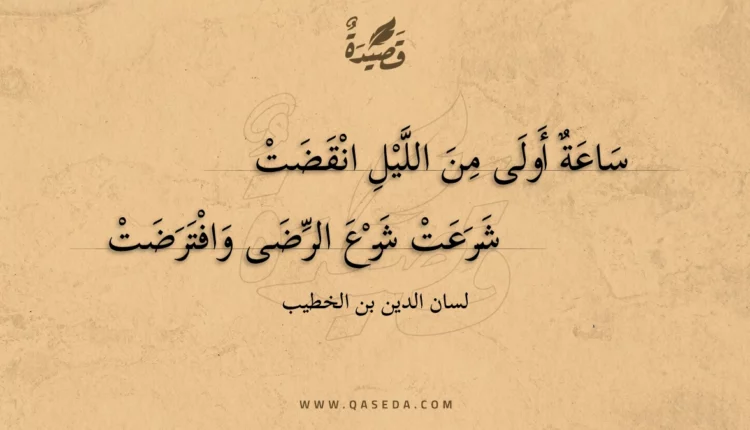 قَصِيدَةٌ
سَاعَةٌ أَولَى مِنَ اللَّيْلِ انْقَضَتْ
شَرَعَتْ شَرْعَ الرِّضَى وَافْتَرَضَتْ
لسان الدين بن الخطيب
WWW.QASEDA.COM